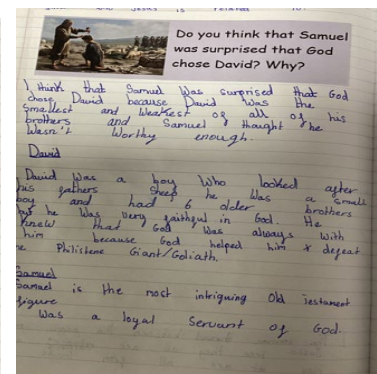 Do you think that Samuel
was surprised that God
chose David? Why?
I think that Samuel was surprised that God
chose David because David was the
smallest and weakest of all of his
brothers and Samuel thought he
wasn't worthy enough.
David
David was a boy who looked after
his fathers sheep he was a small
boy and had 6 older brothers
but he was very faithful in God. He
knew that God was always with
him because God helped him defeat
he Philistene Giant/Goliath.
Samuel
Samuel is the most intriguing Old Testament
figure
Was a loyal Servant of God.